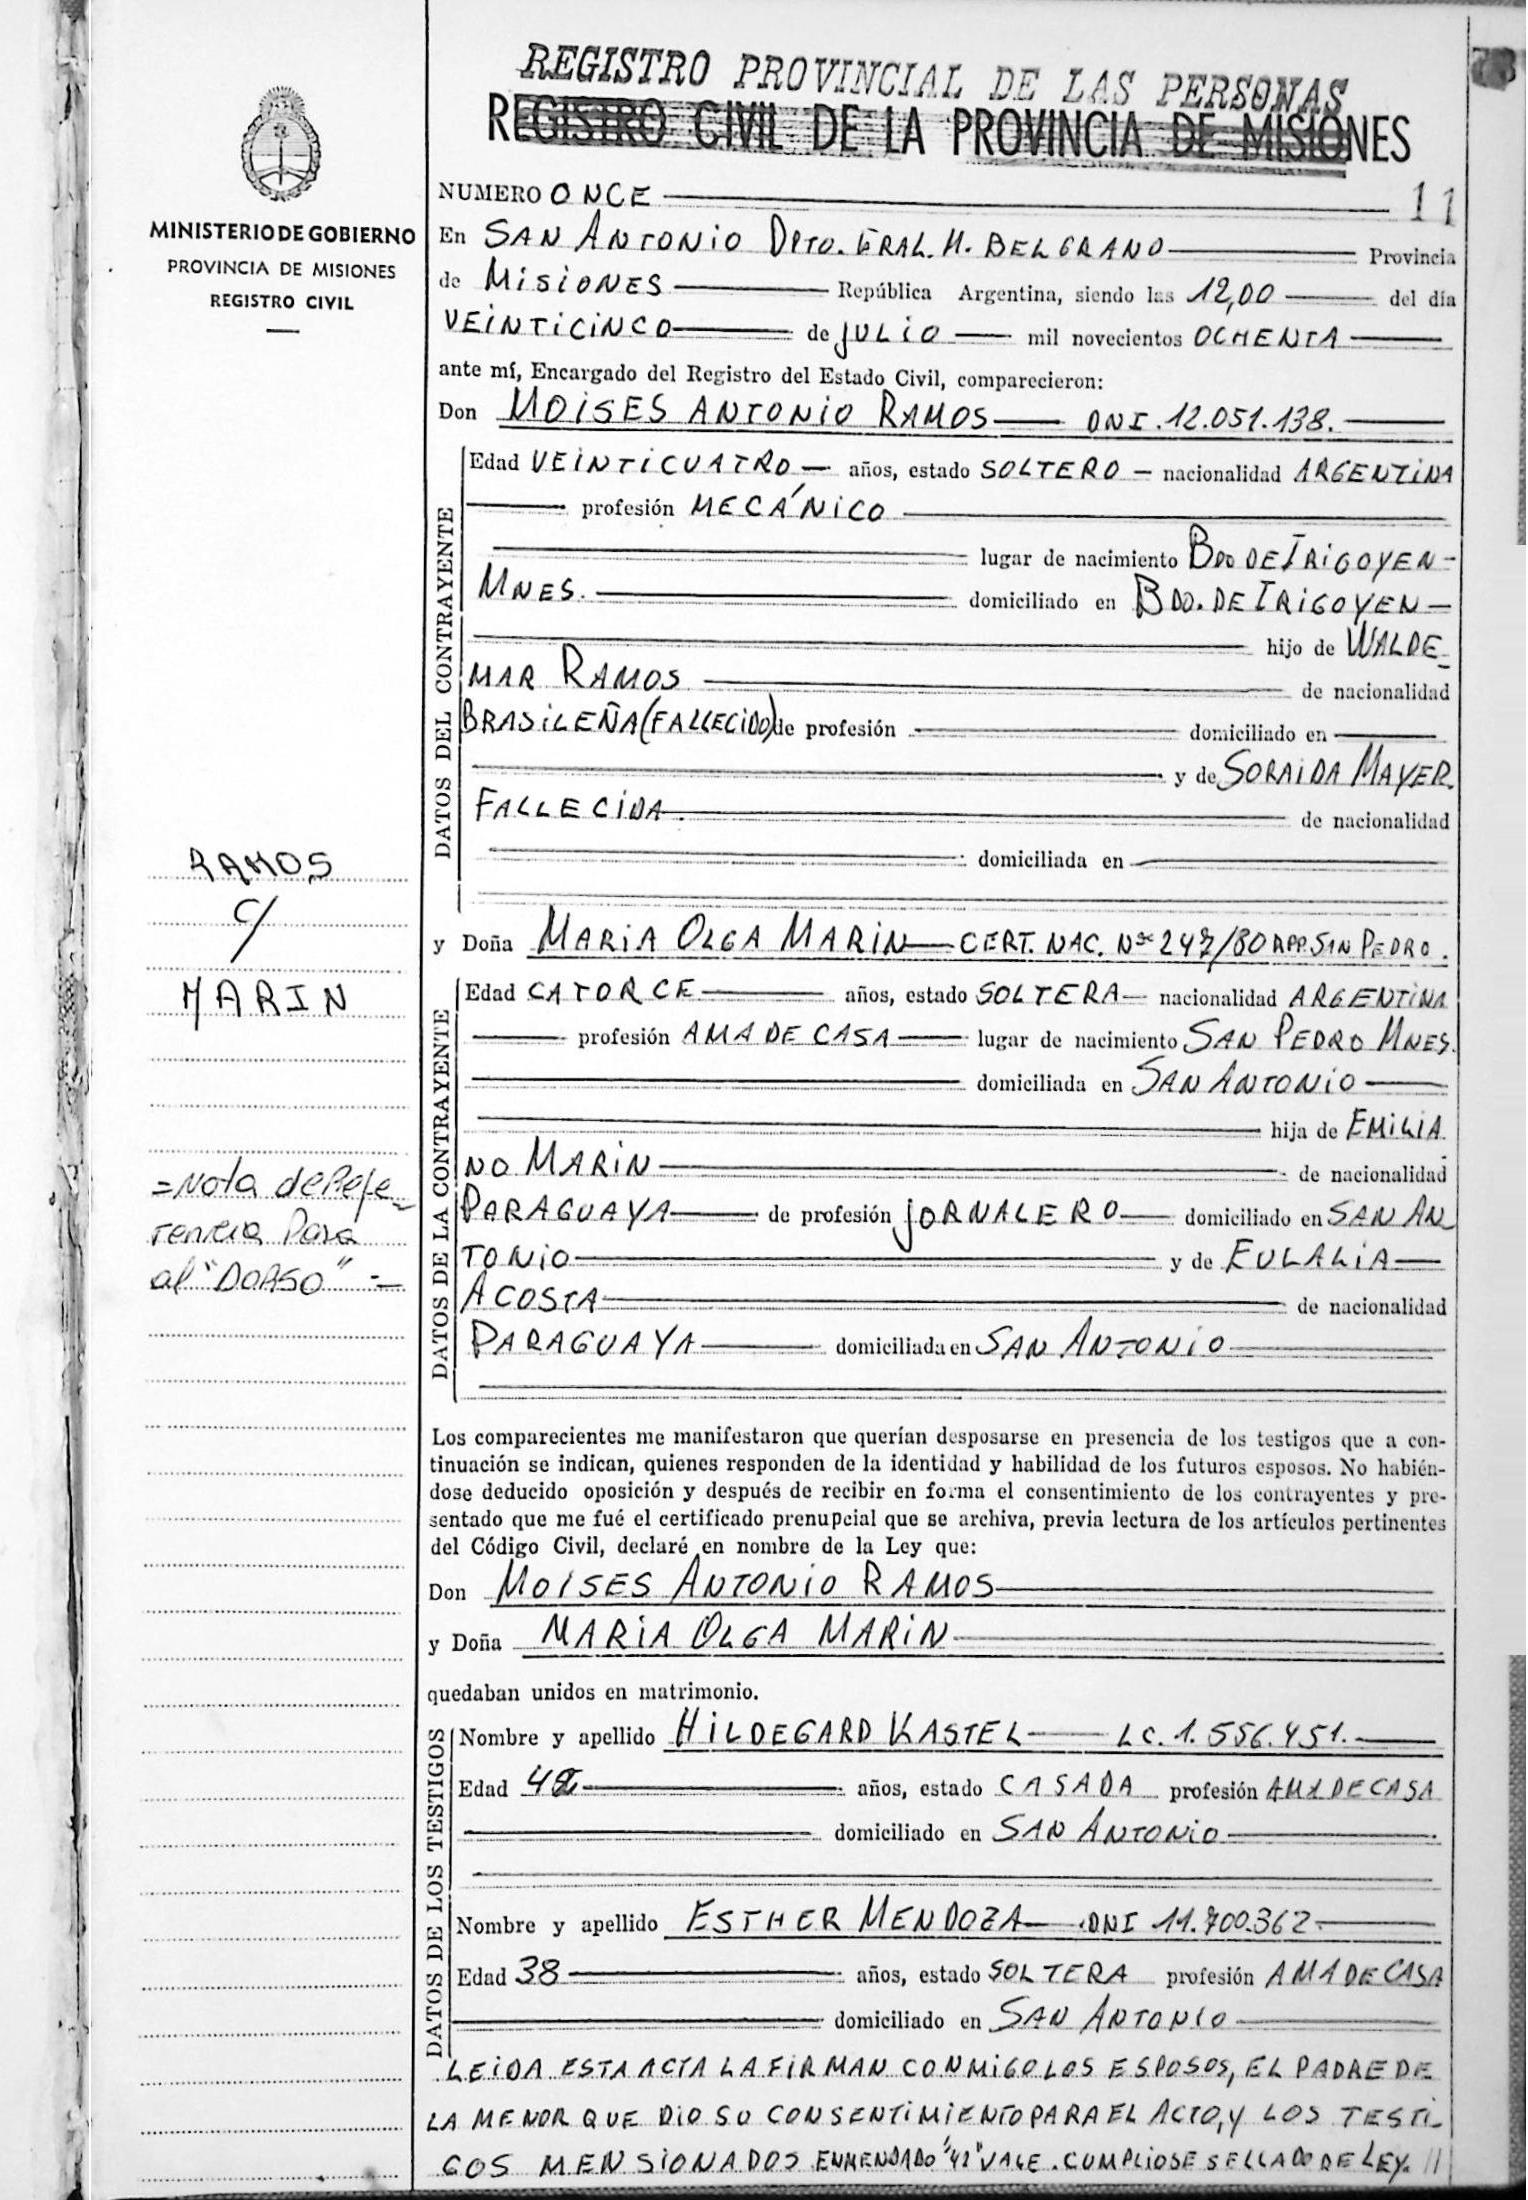 REGISTRO PROVINCIAL DE LAS PERSONAS
REGISTRO CIVIL DE LA PROVINCIA DE MISIONES
MINISTERIO DE GOBIERNO
PROVINCIA DE MISIONES
REGISTRO CIVIL
NUMERO ONCE 11
En SAN ANTONIO DPTO. GRAL. M. BELGRANO Provincia
de MISIONES República Argentina, siendo las 12,00 del día
VEINTICINCO de JULIO mil novecientos OCHENTA
ante mí, Encargado del Registro del Estado Civil, comparecieron:
Don MOISES ANTONIO RAMOS DNI. 12.051.138.
DATOS DEL CONTRAYENTE
Edad VEINTICUATRO años, estado SOLTERO nacionalidad ARGENTINA
profesión MECÁNICO
lugar de nacimiento BDO DE IRIGOYEN
MNES. domiciliado en BDO. DE IRIGOYEN
hijo de WALDE
MAR RAMOS de nacionalidad
BRASILEÑA (FALLECIDO) de profesión domiciliado en
y de SORAIDA MAYER.
FALLECIDA. de nacionalidad
domiciliada en
RAMOS
C/
MARIN
y Doña MARIA OLGA MARIN CERT. NAC. Nº 247/80 RPP. SAN PEDRO.
DATOS DE LA CONTRAYENTE
Edad CATORCE años, estado SOLTERA nacionalidad ARGENTINA
profesión AMA DE CASA lugar de nacimiento SAN PEDRO MNES.
domiciliada en SAN ANTONIO
hija de EMILIA
NO MARIN de nacionalidad
PARAGUAYA de profesión JORNALERO domiciliado en SAN AN
TONIO y de EULALIA
ACOSTA de nacionalidad
PARAGUAYA domiciliada en SAN ANTONIO
=Nota de Refe
rencia Para
al "DORSO" =
Los comparecientes me manifestaron que querían desposarse en presencia de los testigos que a con-
tinuación se indican, quienes responden de la identidad y habilidad de los futuros esposos. No habién-
dose deducido oposición y después de recibir en forma el consentimiento de los contrayentes y pre-
sentado que me fué el certificado prenupcial que se archiva, previa lectura de los artículos pertinentes
del Código Civil, declaré en nombre de la Ley que:
Don MOISES ANTONIO RAMOS
y Doña MARIA OLGA MARIN
quedaban unidos en matrimonio.
DATOS DE LOS TESTIGOS
Nombre y apellido HILDEGARD KASTEL LC. 1.556.451.
Edad años, estado CASADA profesión AMA DE CASA
domiciliado en SAN ANTONIO
Nombre y apellido ESTHER MENDOZA DNI 11.700.362
Edad 38 años, estado SOLTERA profesión AMA DE CASA
domiciliado en SAN ANTONIO
LEIDA ESTA ACTA LA FIRMAN CONMIGO LOS ESPOSOS, EL PADRE DE
LA MENOR QUE DIO SU CONSENTIMIENTO PARA EL ACTO, Y LOS TESTI-
GOS MENSIONADOS ENMENDADO "42" VALE. CUMPLIOSE SELLADO DE LEY. //